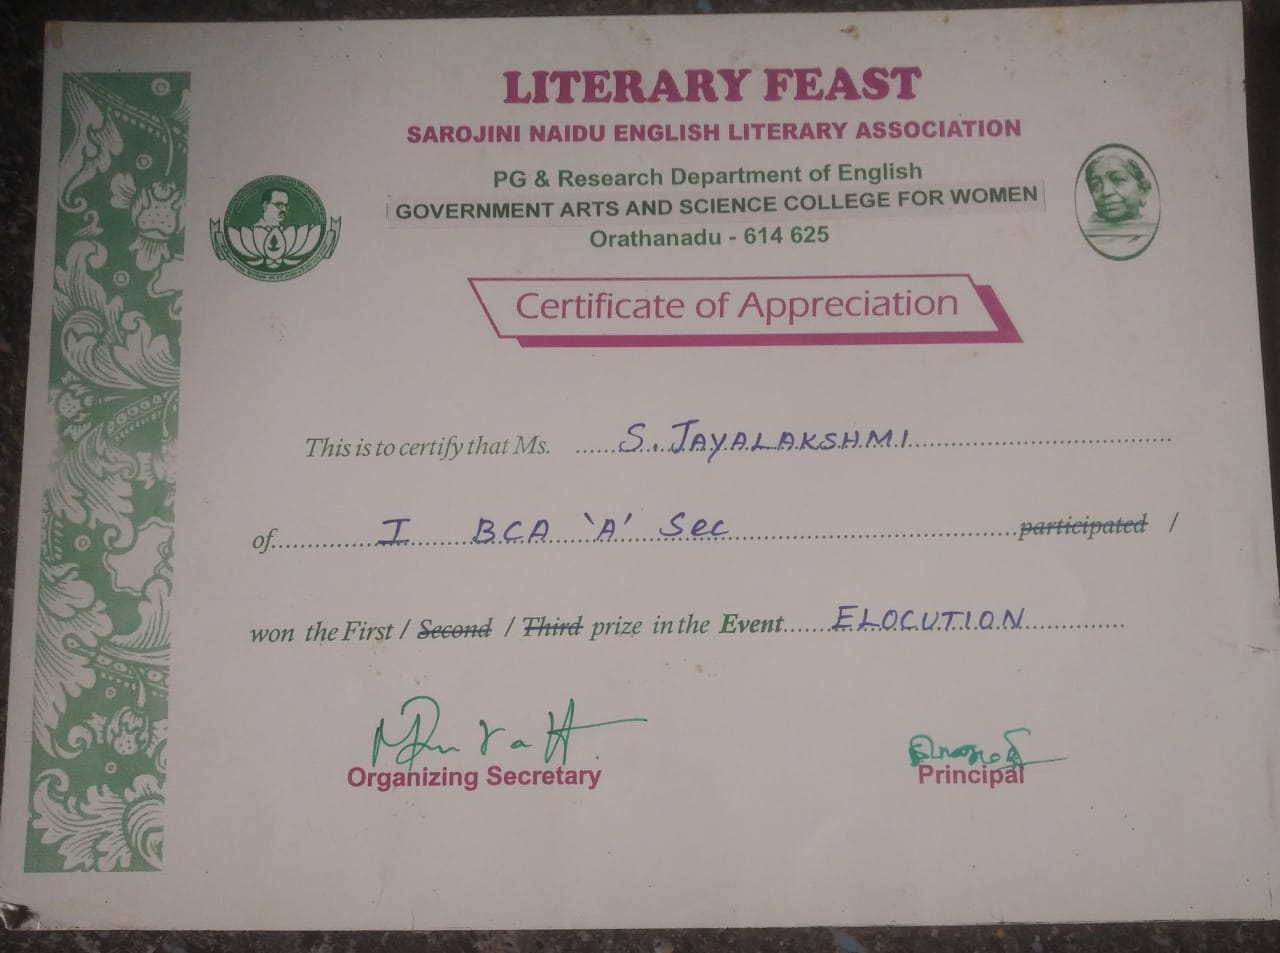 LITERARY FEAST
SAROJINI NAIDU ENGLISH LITERARY ASSOCIATION
PG & Research Department of English
GOVERNMENT ARTS AND SCIENCE COLLEGE FOR WOMEN
Orathanadu - 614 625
Certificate of Appreciation
This is to certify that Ms. ......S. JAYALAKSHMI......
of......I BCA 'A' Sec......participated /
won the First / Second / Third prize in the Event......ELOCUTION......
Organizing Secretary
Principal